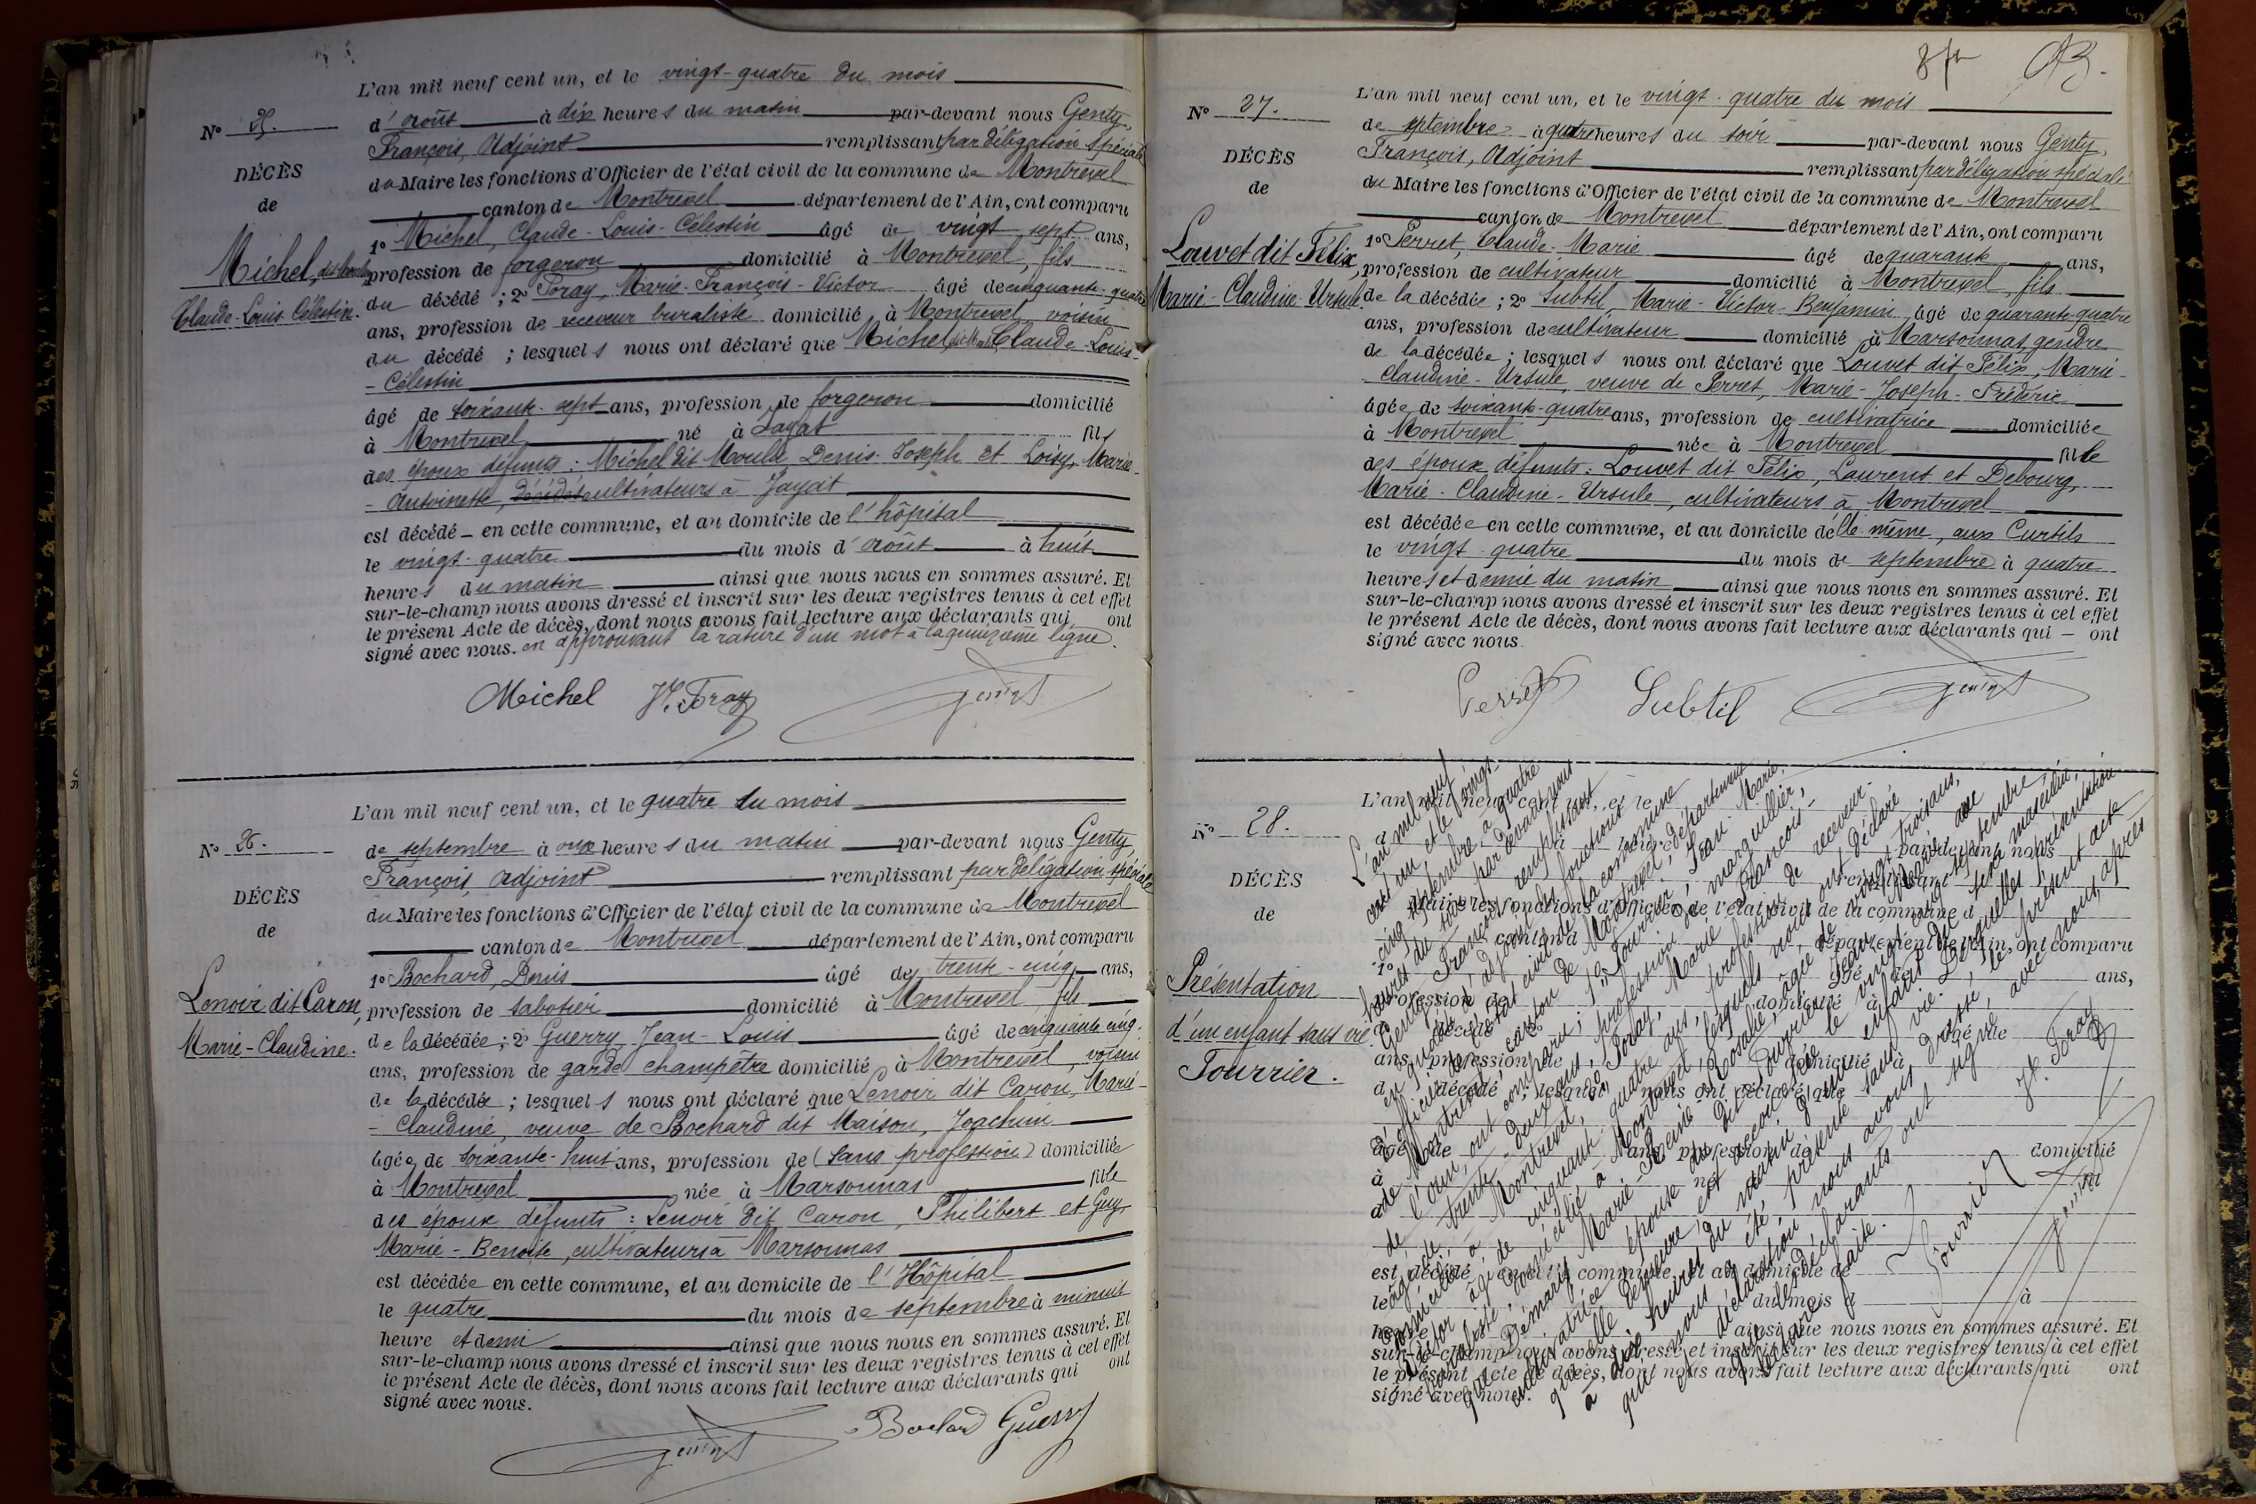 L'an mil neuf cent un, et le vingt-quatre du mois
d'août à dix heures du matin par-devant nous Genty,
François, Adjoint remplissant par délégation spéciale
du Maire les fonctions d'Officier de l'état civil de la commune de Montrevel
canton de Montrevel département de l'Ain, ont comparu
1o Michel, Claude-Louis-Célestin âgé de vingt sept ans,
profession de forgeron domicilié à Montrevel, fils
du décédé ; 2o Foray, Marie-François-Victor âgé de cinquante-quatre
ans, profession de receveur buraliste domicilié à Montrevel, voisin
du décédé ; lesquels nous ont déclaré que Michel Claude-Louis-
-Célestin
âgé de soixante-sept ans, profession de forgeron domicilié
à Montrevel né à Jayat fils
des époux défunts : Michel dit Moulin Denis-Joseph et Loisy, Marie-
-Antoinette, cultivateurs à Jayat
est décédé en cette commune, et au domicile de l'hôpital
le vingt-quatre du mois d'août à huit
heures du matin ainsi que nous nous en sommes assuré. Et
sur-le-champ nous avons dressé et inscrit sur les deux registres tenus à cet effet
le présent Acte de décès, dont nous avons fait lecture aux déclarants qui ont
signé avec nous. en approuvant la rature d'un mot à la quinzième ligne.
Michel Foray Genty
No 25.
DÉCÈS
de
Michel,
Claude-Louis-Célestin.
L'an mil neuf cent un, et le quatre du mois
de septembre à onze heures du matin par-devant nous Genty,
François, Adjoint remplissant par délégation spéciale
du Maire les fonctions d'Officier de l'état civil de la commune de Montrevel
canton de Montrevel département de l'Ain, ont comparu
1o Bochard, Denis âgé de trente-cinq ans,
profession de sabotier domicilié à Montrevel fils
de la décédée ; 2o Guerry, Jean-Louis âgé de cinquante cinq
ans, profession de garde champêtre domicilié à Montrevel, voisin
de la décédée ; lesquels nous ont déclaré que Lenoir dit Caron, Marie-
-Claudine, veuve de Bochard dit Maison, Joachim
âgée de soixante-huit ans, profession de (sans profession) domiciliée
à Montrevel née à Marsonnas fille
des époux défunts : Lenoir dit Caron, Philibert et Guy,
Marie-Benoite, cultivateurs à Marsonnas
est décédée en cette commune, et au domicile de l'Hôpital
le quatre du mois de septembre à minuit
heure et demi ainsi que nous nous en sommes assuré. Et
sur-le-champ nous avons dressé et inscrit sur les deux registres tenus à cet effet
le présent Acte de décès, dont nous avons fait lecture aux déclarants qui ont
signé avec nous.
Genty Bochard Guerry
No 26.
DÉCÈS
de
Lenoir dit Caron,
Marie-Claudine.
L'an mil neuf cent un, et le vingt-quatre du mois
de septembre à quatre heures du soir par-devant nous Genty,
François, Adjoint remplissant par délégation spéciale
du Maire les fonctions d'Officier de l'état civil de la commune de Montrevel
canton de Montrevel département de l'Ain, ont comparu
1o Perret, Claude-Marie âgé de quarante ans,
profession de cultivateur domicilié à Montrevel, fils
de la décédée ; 2o Subtil, Marie-Victor-Benjamin âgé de quarante-quatre
ans, profession de cultivateur domicilié à Marsonnas, gendre
de la décédée ; lesquels nous ont déclaré que Louvet dit Félix, Marie-
Claudine-Ursule, veuve de Perret, Marie-Joseph-Frédéric
âgée de soixante-quatre ans, profession de cultivatrice domiciliée
à Montrevel née à Montrevel fille
des époux défunts : Louvet dit Félix, Laurent et Debourg,
Marie-Claudine-Ursule, cultivateurs à Montrevel
est décédée en cette commune, et au domicile d'elle-même, aux Curtils
le vingt-quatre du mois de septembre à quatre
heures et demie du matin ainsi que nous nous en sommes assuré. Et
sur-le-champ nous avons dressé et inscrit sur les deux registres tenus à cet effet
le présent Acte de décès, dont nous avons fait lecture aux déclarants qui ont
signé avec nous.
Perret Subtil Genty
No 27.
DÉCÈS
de
Louvet dit Félix,
Marie-Claudine-Ursule.
No 28.
DÉCÈS
de
Présentation
d'un enfant sans vie
Fourrier.
L'an mil neuf
cent un, et le vingt-
cinq septembre à quatre
heures du soir par devant nous
Genty, François, remplissant
en qualité d'adjoint les fonctions
d'officier de l'état civil de la commune
de Montrevel, canton de Montrevel, département
de l'Ain, ont comparu ; 1o Fourrier, Jean-Marie,
âgé de trente-deux ans, profession de marguillier,
domicilié à Montrevel, 2o Foray, Marie François-
Victor âgé de cinquante-quatre ans, profession de receveur-
buraliste, domicilié à Montrevel, lesquels nous ont déclaré
que Marie-Reine-Rosalie, âgée de vingt trois ans,
cultivatrice épouse du dit Fourrier Jean-Marie
que elle demeure est accouchée le vingt cinq septembre
à dix heures du matin d'un enfant du sexe masculin,
qui nous a été présenté sans vie. Desquelles présentation
et déclaration nous avons dressé le présent acte
que les déclarants ont signé avec nous, après
lecture faite.
Fourrier Foray Genty